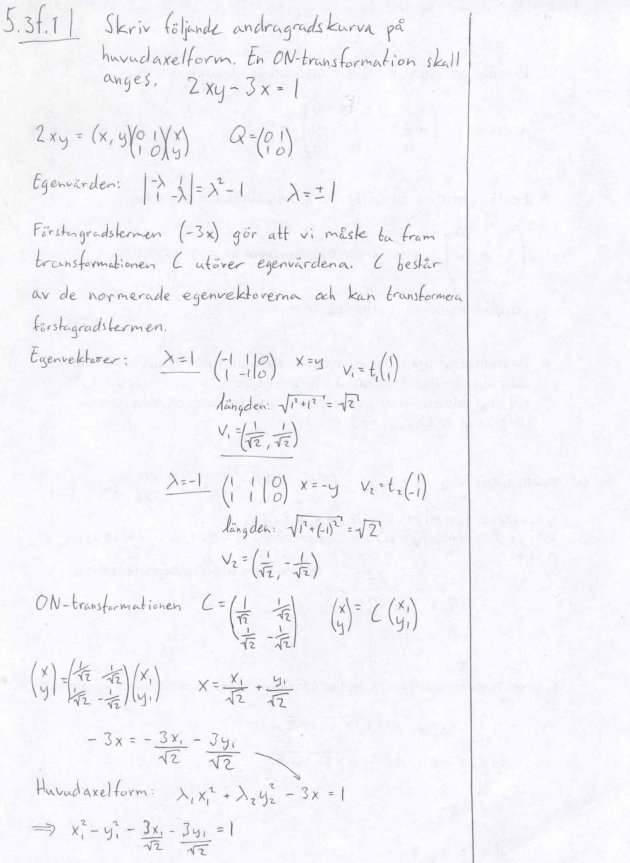 5.3f.1 Skriv följande andragradskurva på
huvudaxelform. En ON-transformation skall
anges. 2xy - 3x = 1
2xy = (x, y)(0 1 / 1 0)(x / y) Q = (0 1 / 1 0)
Egenvärden: |-λ 1 / 1 -λ| = λ² - 1 λ = ±1
Förstagradstermen (-3x) gör att vi måste ta fram
transformationen C utöver egenvärdena. C består
av de normerade egenvektorerna och kan transformera
förstagradstermen.
Egenvektorer: λ=1 (-1 1 | 0 / 1 -1 | 0) x=y v₁ = t₁(1 / 1)
längden: √(1²+1²) = √2
v₁ = (1/√2, 1/√2)
λ=-1 (1 1 | 0 / 1 1 | 0) x=-y v₂ = t₂(1 / -1)
längden: √(1²+(-1)²) = √2
v₂ = (1/√2, -1/√2)
ON-transformationen C = (1/√2 1/√2 / 1/√2 -1/√2) (x / y) = C(x₁ / y₁)
(x / y) = (1/√2 1/√2 / 1/√2 -1/√2)(x₁ / y₁) x = x₁/√2 + y₁/√2
-3x = -3x₁/√2 - 3y₁/√2
Huvudaxelform: λ₁x₁² + λ₂y₂² - 3x = 1
⇒ x₁² - y₁² - 3x₁/√2 - 3y₁/√2 = 1